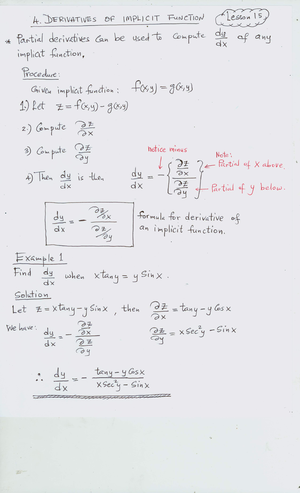 4. DERIVATIVES OF IMPLICIT FUNCTION
Lesson 15
* Partial derivatives can be used to compute dy/dx of any
implicit function.
Procedure:
Given implicit function: f(x,y) = g(x,y)
1.) Let z = f(x,y) - g(x,y)
2.) Compute ∂z/∂x
3) Compute ∂z/∂y
notice minus
Note:
Partial of x above.
4) Then dy/dx is then dy/dx = - { ∂z/∂x / ∂z/∂y }
Partial of y below.
dy/dx = - ∂z/∂x / ∂z/∂y
formula for derivative of
an implicit function.
Example 1
Find dy/dx when x tan y = y Sin x.
Solution
Let z = x tan y - y Sin x, then ∂z/∂x = tan y - y Cos x
We have: dy/dx = - ∂z/∂x / ∂z/∂y
∂z/∂y = x sec²y - Sin x
∴ dy/dx = - tan y - y Cos x / x Sec²y - Sin x